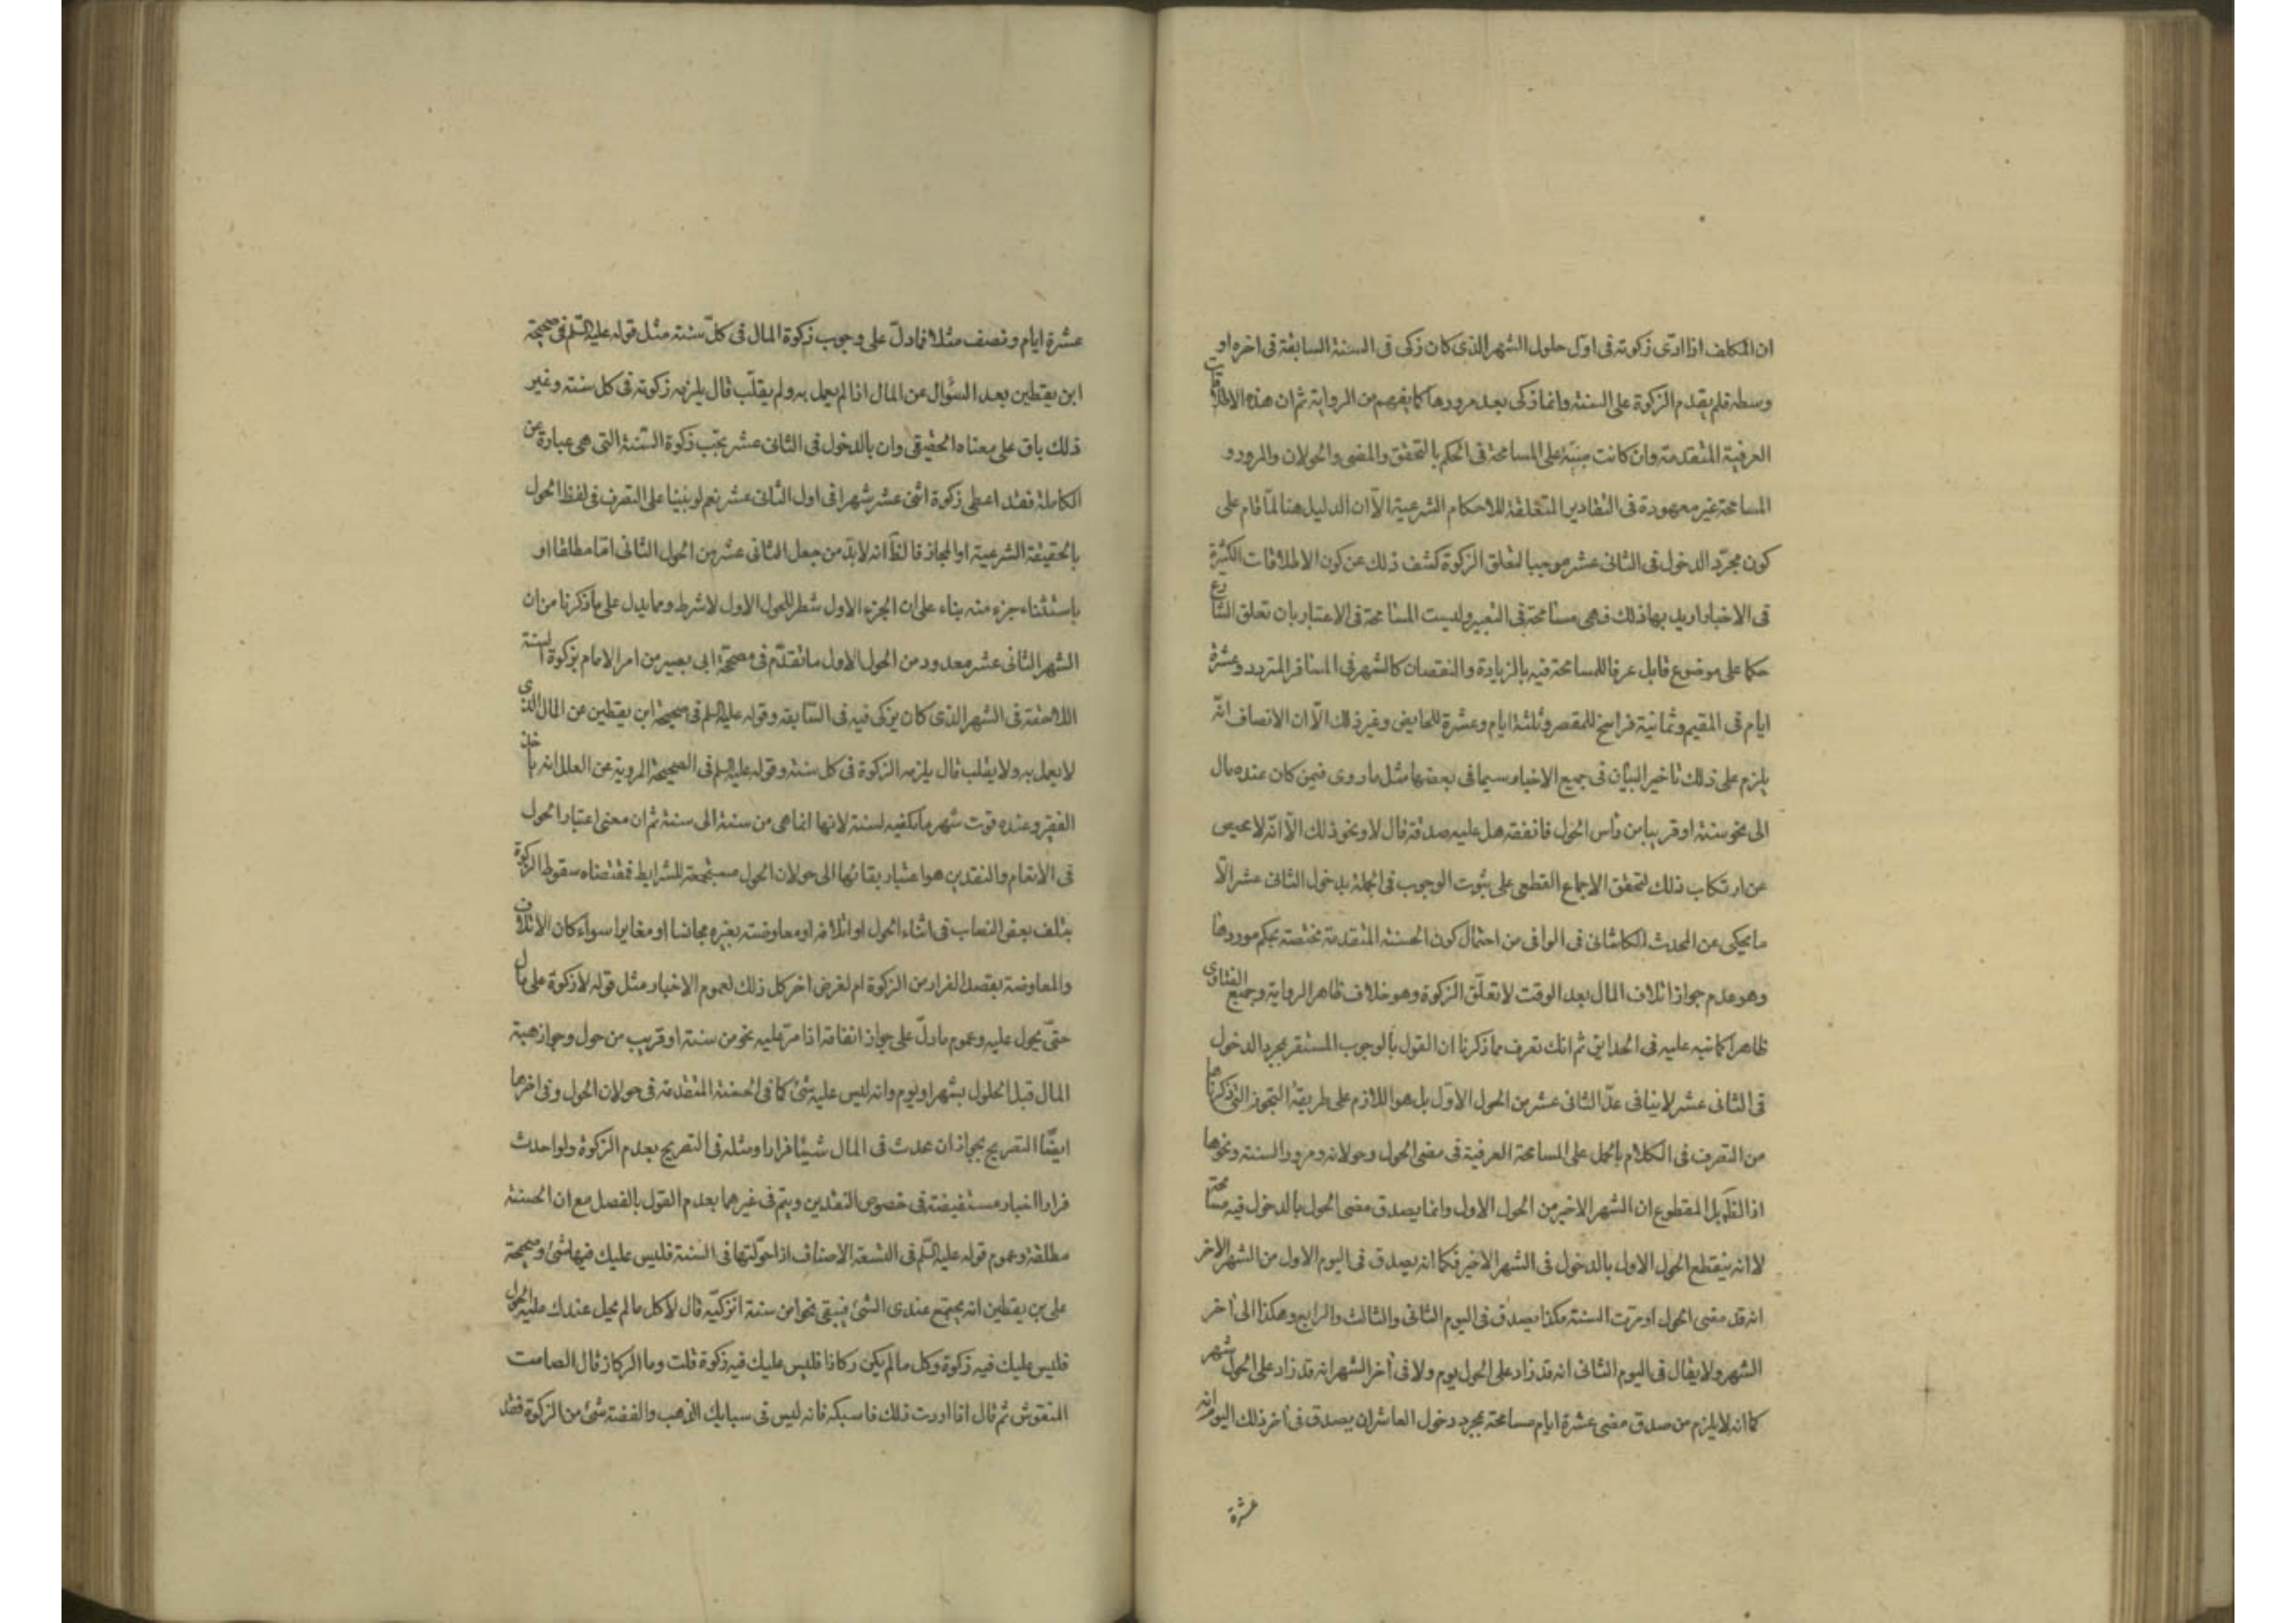 ان المكلف اذا ادى زكوته فى اول حلول الشهر الذى كان زكى فى السنة السابقة فى اخره او
وسطه فلم يقدم الزكوة على السنة وانما زكى بعد مرورها كما يفهم من الرواية ثم ان هذه الاطلاقات
العرفية المتقدمة وان كانت مبنية على المسامحة فى الحكم بالتحقق والمضى والحولان والمرور و
المسامحة غير معهودة فى التقادير المتعلقة للاحكام الشرعية الا ان الدليل هنا لما قام على
كون مجرد الدخول فى الثانى عشر موجبا لتعلق الزكوة كشف ذلك عن كون الاطلاقات الكثيرة
فى الاخبار اريد بها ذلك فهى مسامحة فى التعبير وليست المسامحة فى الاعتبار بان تعلق الشارع
حكما على موضوع قابل عرفا للمسامحة فيه بالزيادة والنقصان كالشهر فى المسافر المتردد وعشرة
ايام فى المقيم وثمانية فراسخ للمقصر وثلثة ايام وعشرة للحايض وغير ذلك الا ان الانصاف انه
يلزم على ذلك تاخير البيان فى جميع الاخبار سيما فى بعضها مثل ما روى فيمن كان عنده مال
الى نحو سنة او قريبا من راس الحول فانفقه هل عليه صدقة قال لا ونحو ذلك الا انه لا محيص
عن ارتكاب ذلك لتحقق الاجماع القطعى على ثبوت الوجوب فى الجملة بدخول الثانى عشر الا
ما يحكى عن المحدث الكاشانى فى الوافى من احتمال كون الحسنة المتقدمة مختصة بحكم موردها
وهو عدم جواز اتلاف المال بعد الوقت لا تعلق الزكوة وهو خلاف ظاهر الرواية وجميع الفتاوى
ظاهرا كما نبه عليه فى الحدايق ثم انك تعرف مما ذكرنا ان القول بالوجوب المستقر بمجرد الدخول
فى الثانى عشر لا ينافى عد الثانى عشر من الحول الاول بل هو اللازم على طريقة التجوز التى ذكرناها
من التصرف فى الكلام بالحمل على المسامحة العرفية فى مضى الحول وحولانه ومرور السنة ونحوها
اذ الظ بل المقطوع ان الشهر الاخير من الحول الاول وانما يصدق مضى الحول بالدخول فيه مسامحة
لا انه ينقطع الحول الاول بالدخول فى الشهر الاخير فكما انه يصدق فى اليوم الاول من الشهر الاخر
انه قد مضى الحول او مرت السنة هكذا يصدق فى اليوم الثانى والثالث والرابع وهكذا الى اخر
الشهر ولا يقال فى اليوم الثانى انه قد زاد على الحول يوم ولا فى اخر الشهر انه قد زاد على الحول شهر
كما انه لا يلزم من صدق مضى عشرة ايام مسامحة بمجرد دخول العاشر ان يصدق فى اخر ذلك اليوم انه
عشرة
عشرة ايام ونصف مثلا فما دل على وجوب زكوة المال فى كل سنة مثل قوله عليه السلم فى صحيحة
ابن يقطين بعد السؤال عن المال اذا لم يعمل به ولم يقلب قال يلزمه زكوته فى كل سنة وغير
ذلك باق على معناه الحقيقى وان بالدخول فى الثانى عشر يجب زكوة السنة التى هى عبارة عن
الكاملة فقد اعطى زكوة اثنى عشر شهرا فى اول الثانى عشر نعم لو بنينا على التصرف فى لفظ الحول
بالحقيقة الشرعية او المجاز فالظ انه لا بد من جعل الثانى عشر من الحول الثانى اما مطلقا او
باستثناء جزء منه بناء على ان الجزء الاول شطر للحول الاول لا شرط ومما يدل على ما ذكرنا من ان
الشهر الثانى عشر معدود من الحول الاول ما تقدم فى مصححة ابى بصير من امر الامام بزكوة السنة
اللاحقة فى الشهر الذى كان يزكى فيه فى السابقة وقوله عليه السلم فى صحيحة ابن يقطين عن المال الذى
لا يعمل به ولا يقلب قال يلزمه الزكوة فى كل سنة وقوله عليه السلم فى الصحيحة المروية عن العلل انه ياخذ
الفقير وعنده قوت شهر ما يكفيه لسنة لانها انما هى من سنة الى سنة ثم ان معنى اعتبار الحول
فى الانعام والنقدين هو اعتبار بقائها الى حولان الحول مستجمعة للشرايط فمقتضاه سقوط الزكوة
بتلف بعض النصاب فى اثناء الحول او اتلافه او معاوضته بغيره مجانسا او مغايرا سواء كان الاتلاف
والمعاوضة بقصد الفرار من الزكوة ام لغرض اخر كل ذلك لعموم الاخبار مثل قوله لا زكوة على مال
حتى يحول عليه وعموم ما دل على جواز انفاقه اذا مر عليه نحو من سنة او قريب من حول وجواز هبة
المال قبل الحلول بشهر او يوم وانه ليس عليه شئ كما فى الحسنة المتقدمة فى حولان الحول وفى اخرها
ايضا التصريح بجواز ان يحدث فى المال شيئا فرارا ومثله فى التصريح بعدم الزكوة ولو احدث
فرارا اخبار مستفيضة فى خصوص النقدين ويتم فى غيرهما بعدم القول بالفصل مع ان الحسنة
مطلقة وعموم قوله عليه السلم فى التسعة الاصناف اذا حولتها فى السنة فليس عليك فيها شئ وصحيحة
على بن يقطين انه يجتمع عندى الشئ فيبقى نحوا من سنة انزكيه قال لا كل ما لم يحل عندك عليه الحول
فليس عليك فيه زكوة وكل ما لم يكن ركازا فليس عليك فيه زكوة قلت وما الركاز قال الصامت
المنقوش ثم قال اذا اردت ذلك فاسبكه فانه ليس فى سبايك الذهب والفضة شئ من الزكوة فقد